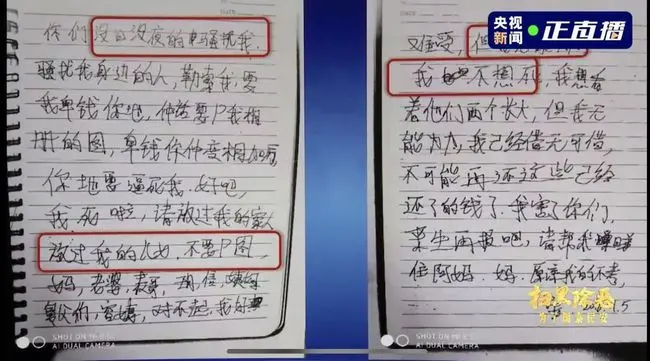 央视新闻 正直播
你们没日没夜的骚扰我,
骚扰我身边的人,勒索我,要
我卑钱你地,仲话要P我相
册的图,卑钱你仲变相加
你地要逼死我.好吧,
我死啦,请放过我的家人
放过我的儿女,不要P图
妈,老婆,表哥,
对不起,我好
又难受,但
我 不想死,我想看
着他们两个长大,但我无
能为力,我已经借无可借,
不可能再还这些已经
还了的钱了.我害了你们,
来生再报吧,请帮我
住阿妈.妈.原谅我的不孝,
1.5
扫黑除恶
为了国泰民安
SHOT ON MI 8 SE
AI DUAL CAMERA
SHOT ON MI 8 SE
AI DUAL CAMERA